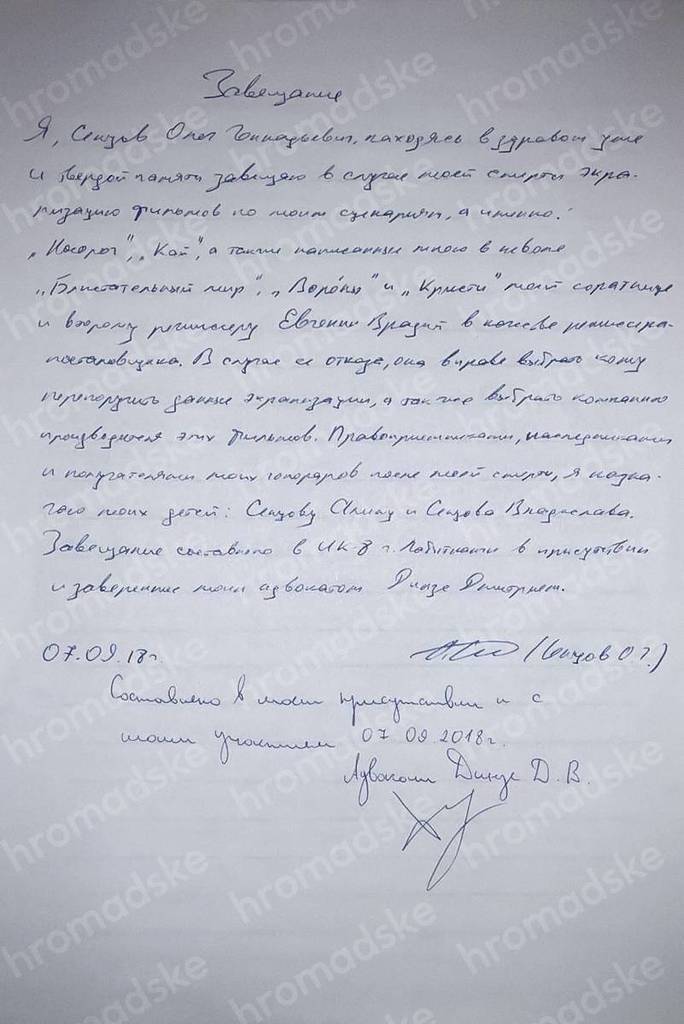 Завещание
Я, Сенцов Олег Геннадьевич, находясь в здравом уме
и твердой памяти завещаю в случае моей смерти экра-
низацию фильмов по моим сценариям, а именно:
„Носорог", „Кай", а также написанные мною в неволе
„Блистательный мир", „Воро́ны" и „Кристи" моей соратнице
и второму режиссеру Евгении Врадий в качестве режиссера-
постановщика. В случае ее отказа, она вправе выбрать кому
перепоручить данные экранизации, а также выбрать компанию
производителя этих фильмов. Правоприемниками, наследниками
и получателями моих гонораров после моей смерти, я назна-
чаю моих детей: Сенцову Алину и Сенцова Владислава.
Завещание составлено в ИК-8 г. Лабытнанги в присутствии
и заверенное моим адвокатом Динзе Дмитрием.
07.09.18г. (Сенцов О.Г.)
Составлено в моем присутствии и с
моим участием 07.09.2018г.
Адвокат Динзе Д.В.
hromadske